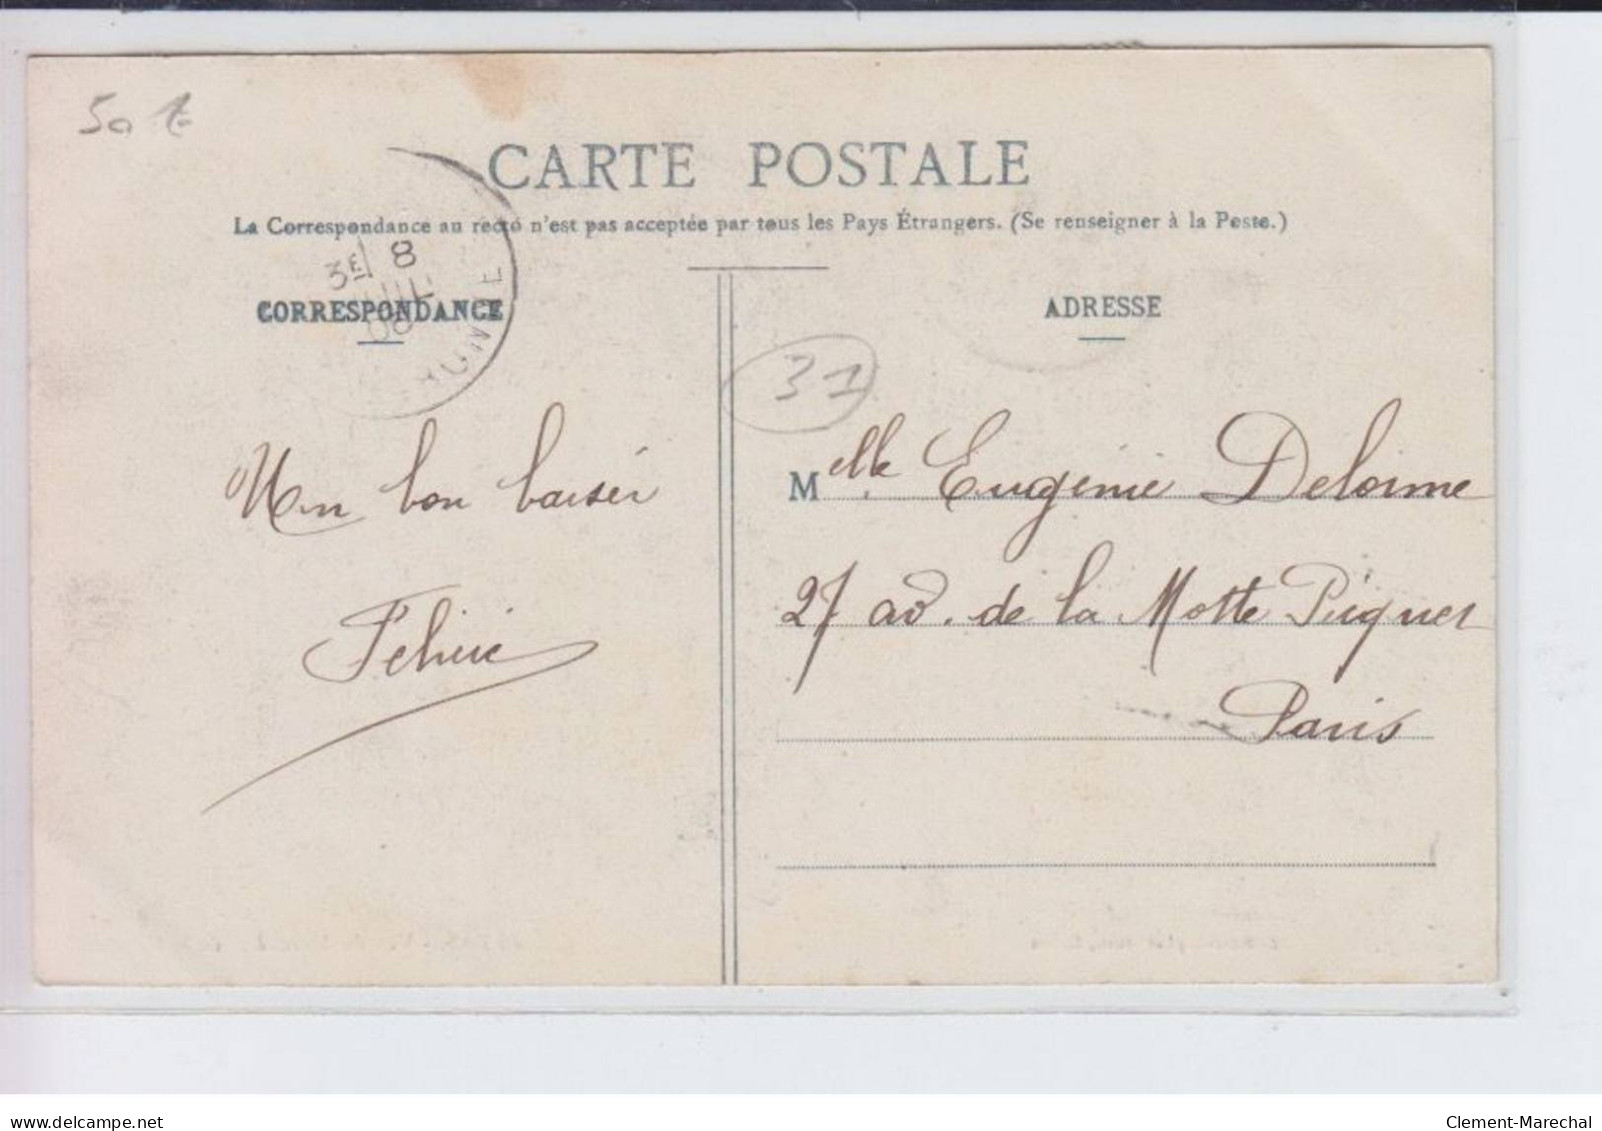 50 €
CARTE POSTALE
La Correspondance au recto n'est pas acceptée par tous les Pays Étrangers. (Se renseigner à la Poste.)
3E 8
JUIL
08
CORRESPONDANCE
ADRESSE
37
Un bon baiser
Félicie
Melle Eugénie Delorme
27 av. de la Motte Piquet
Paris
www.delcampe.net
Clement-Marechal